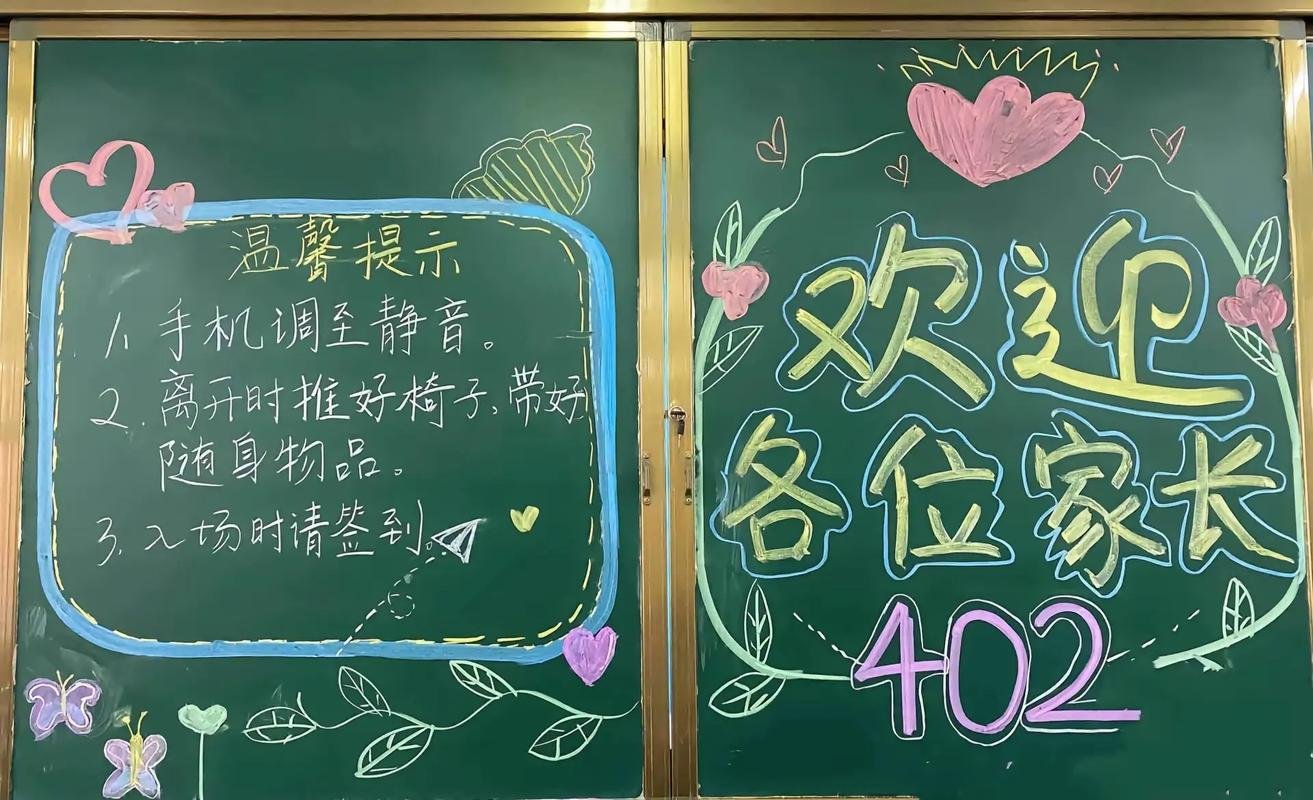 温馨提示
1. 手机调至静音。
2. 离开时推好椅子、带好
随身物品。
3. 入场时请签到。
欢迎
各位家长
402